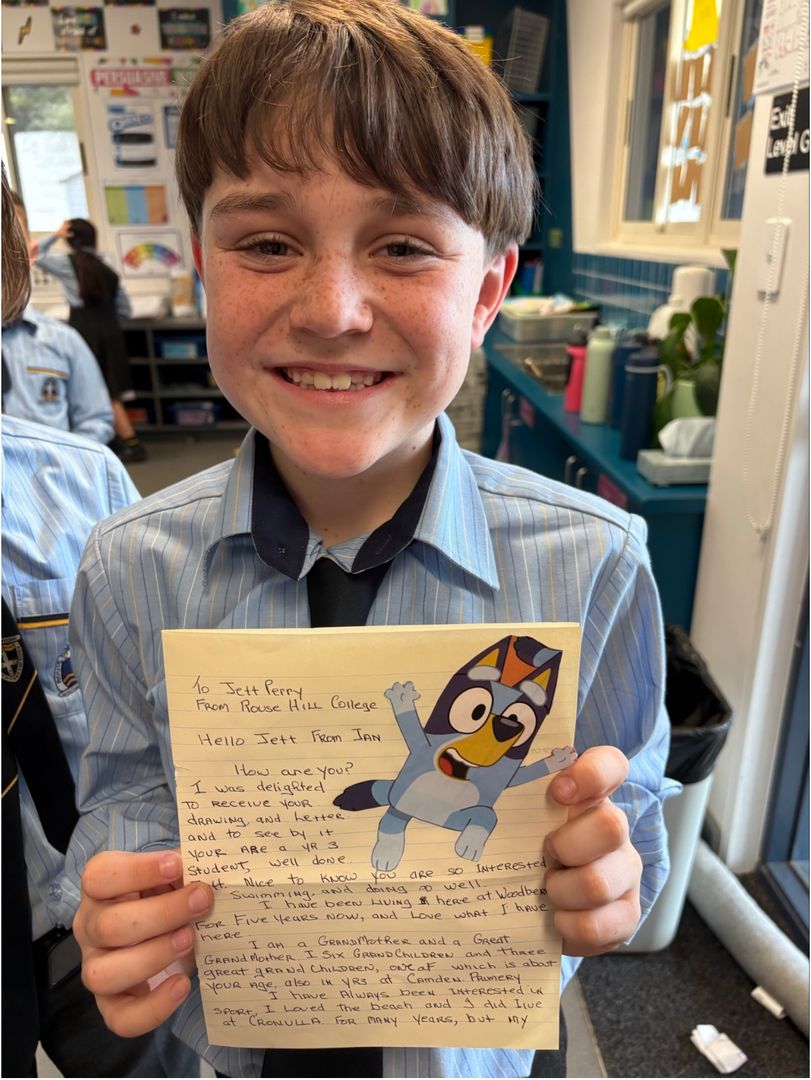 PERSUASIVE
Exit
Level G
To Jett Perry
FROM ROUSE HILL COLLEGE
Hello Jett FROM IAN
How are you?
I was delighted
TO RECEIVE YOUR
DRAWING, AND LETTER.
AND TO SEE BY IT
YOUR ARE A YR 3
STUDENT, WELL DONE.
NICE TO KNOW YOU ARE SO INTERESTED
SWIMMING, AND DOING SO WELL.
I HAVE BEEN LIVING HERE AT WOODBER
FOR FIVE YEARS NOW, AND LOVE WHAT I HAVE
HERE
I AM A GRANDMOTHER AND A GREAT
GRANDMOTHER. I SIX GRANDCHILDREN AND THREE
GREAT GRAND CHILDREN, ONE OF WHICH IS ABOUT
YOUR AGE, ALSO IN YR3 AT CAMDEN PRIMERY
I HAVE ALWAYS BEEN INTERESTED IN
SPORT, I LOVED THE BEACH AND I DID LIVE
AT CRONULLA FOR MANY YEARS, BUT MY